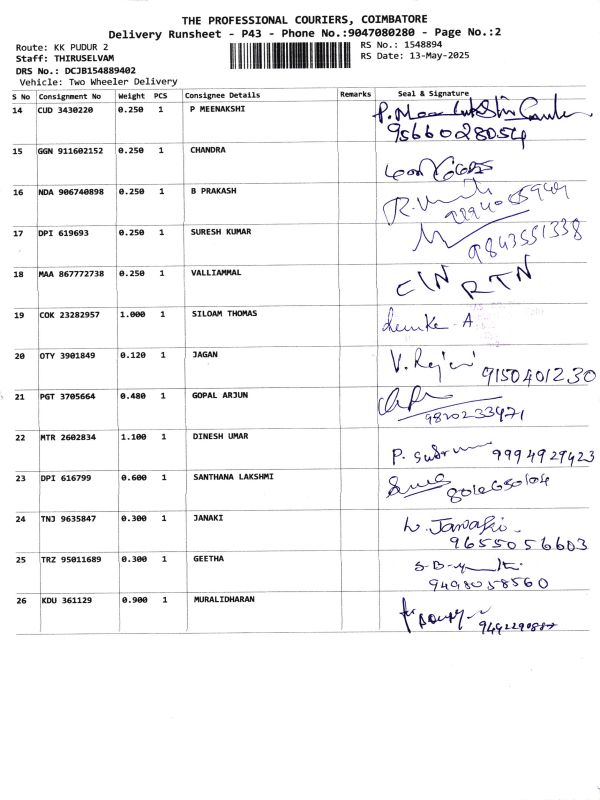 THE PROFESSIONAL COURIERS, COIMBATORE
Delivery Runsheet - P43 - Phone No.:9047080280 - Page No.:2
Route: KK PUDUR 2
RS No.: 1548894
Staff: THIRUSELVAM
RS Date: 13-May-2025
DRS No.: DCJB154889402
Vehicle: Two Wheeler Delivery
S No Consignment No Weight PCS Consignee Details Remarks Seal & Signature
14 CUD 3430220 0.250 1 P MEENAKSHI
9566028054
15 GGN 911602152 0.250 1 CHANDRA
16 NDA 906740898 0.250 1 B PRAKASH
17 DPI 619693 0.250 1 SURESH KUMAR
9843551338
18 MAA 867772738 0.250 1 VALLIAMMAL
RTN
19 COK 23282957 1.000 1 SILOAM THOMAS
20 OTY 3901849 0.120 1 JAGAN
9150401230
21 PGT 3705664 0.480 1 GOPAL ARJUN
9820233471
22 MTR 2602834 1.100 1 DINESH UMAR
9994929423
23 DPI 616799 0.600 1 SANTHANA LAKSHMI
24 TNJ 9635847 0.300 1 JANAKI
9655056603
25 TRZ 95011689 0.300 1 GEETHA
9498058560
26 KDU 361129 0.900 1 MURALIDHARAN